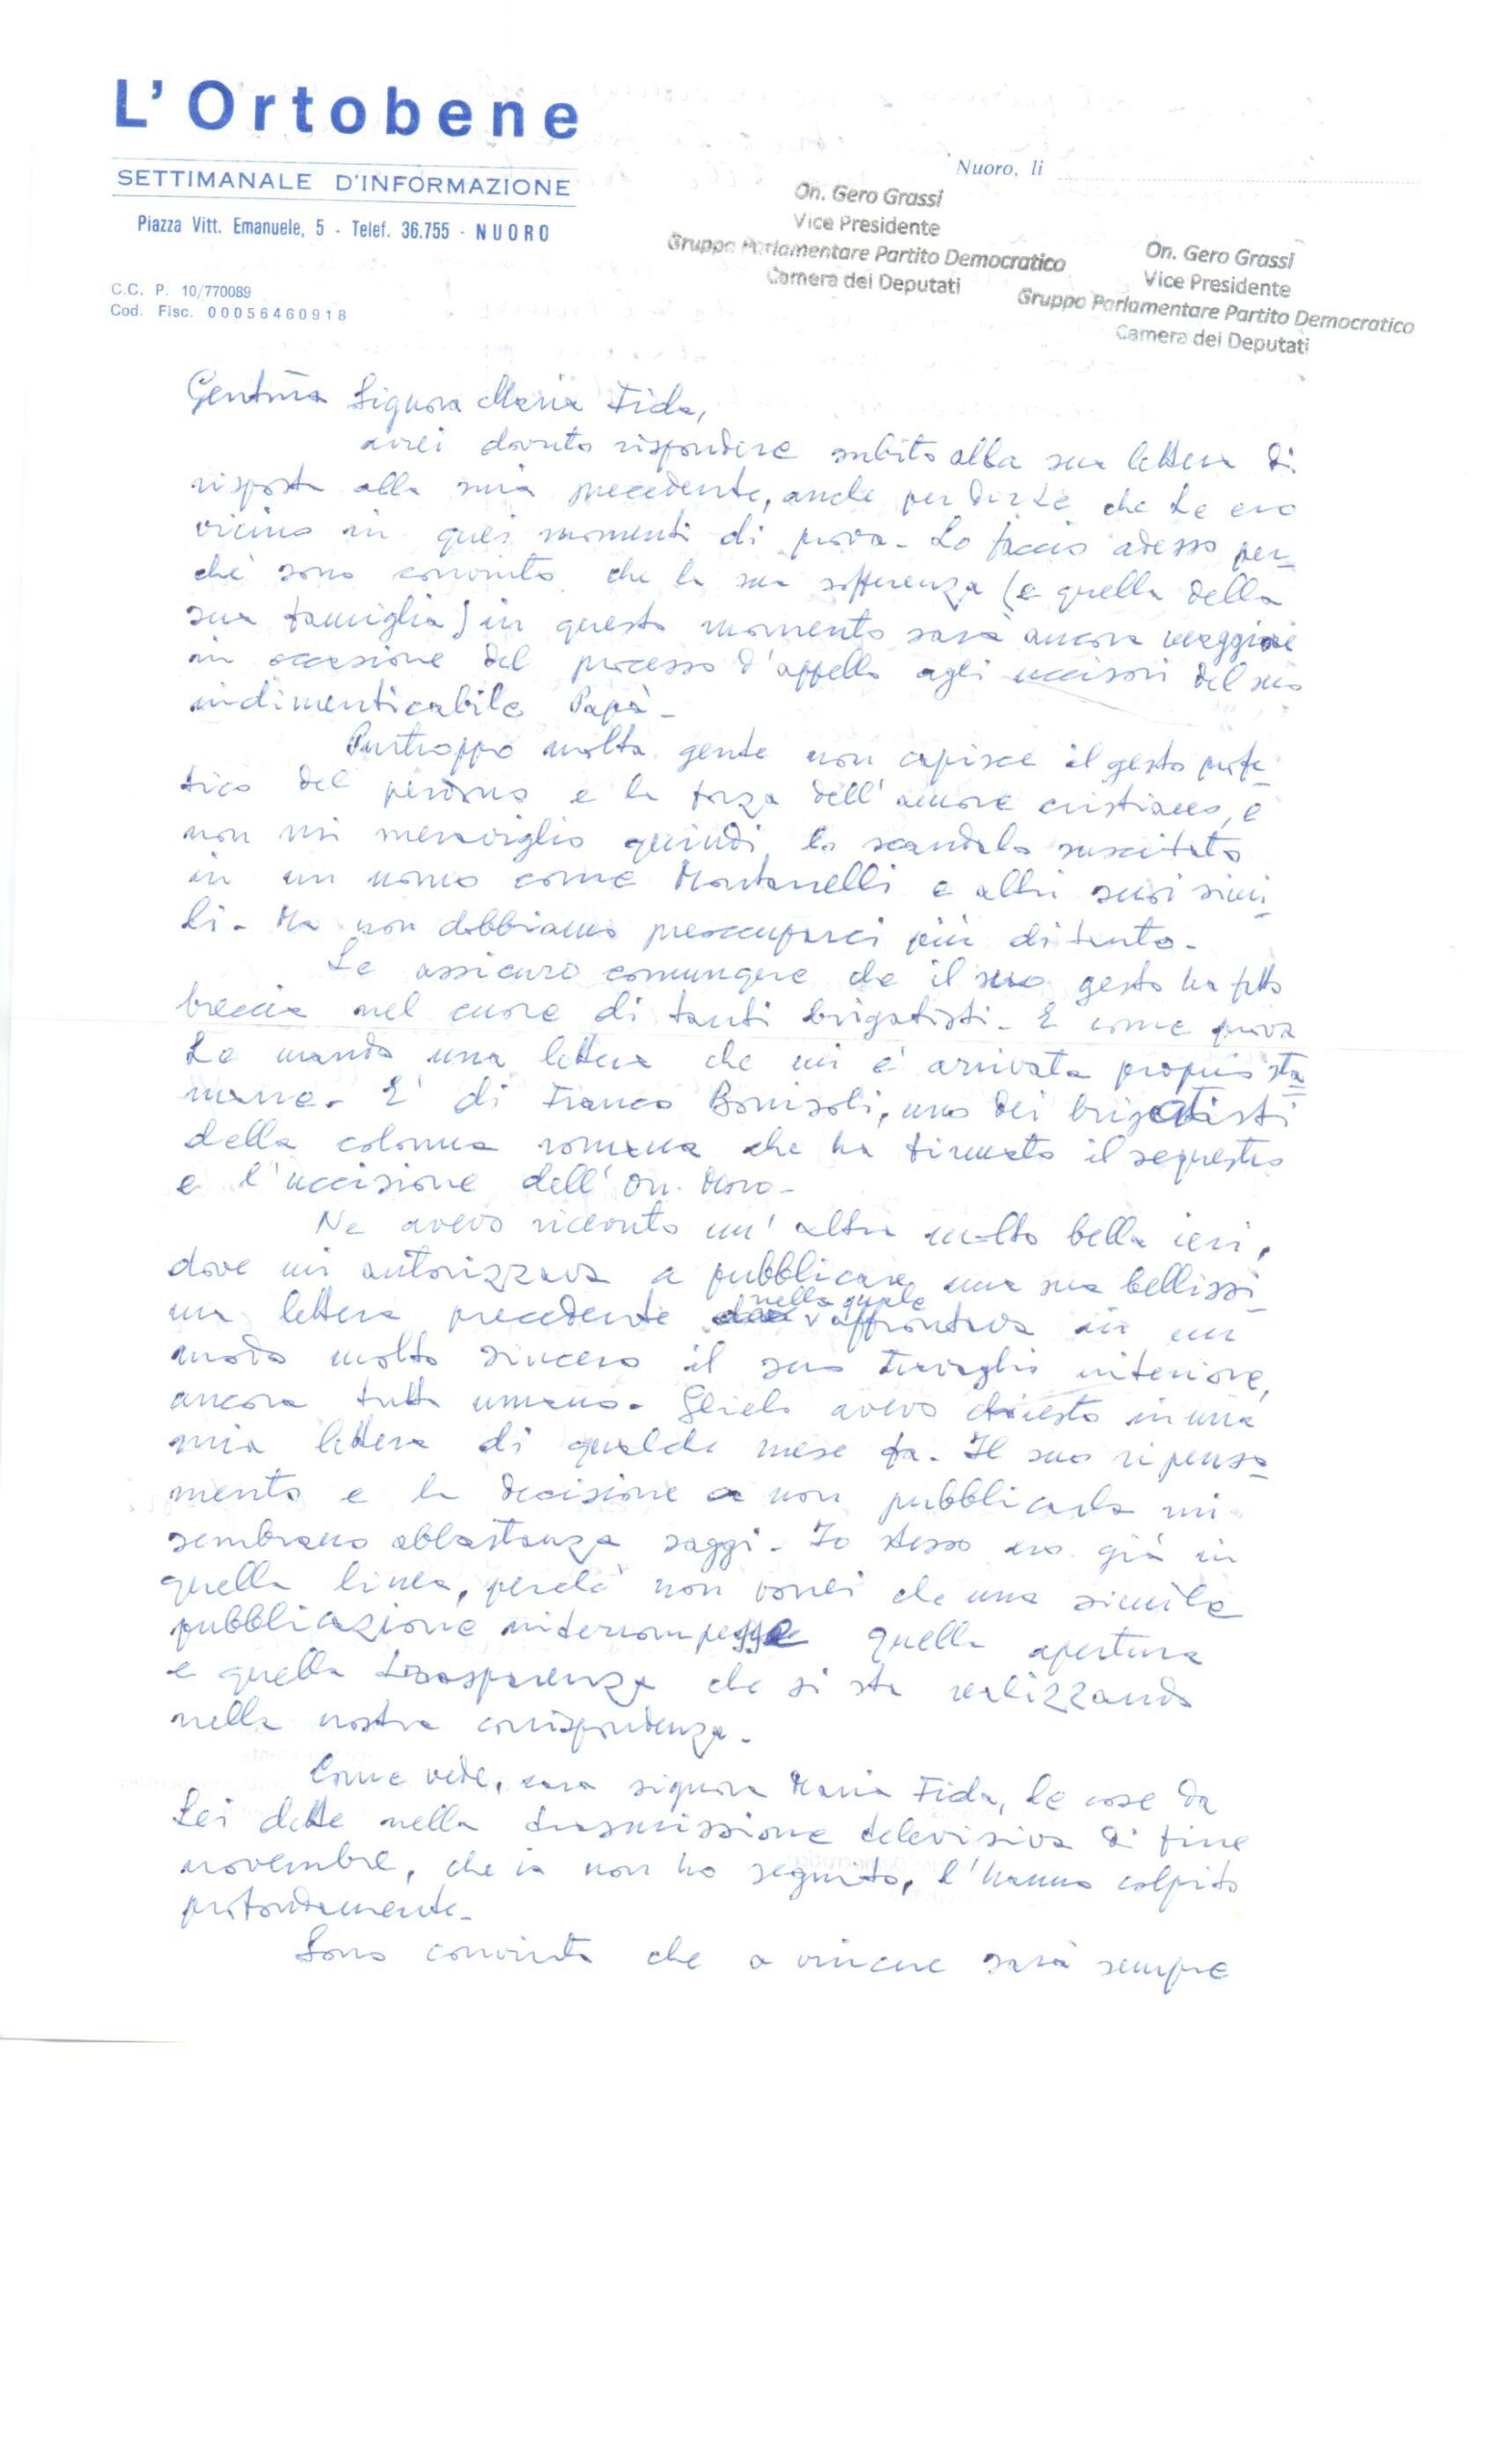 L'Ortobene
SETTIMANALE D'INFORMAZIONE
Piazza Vitt. Emanuele, 5 - Telef. 36.755 - NUORO
C.C. P. 10/770089
Cod. Fisc. 00056460918
Nuoro, li
On. Gero Grassi
Vice Presidente
Gruppo Parlamentare Partito Democratico
Camera dei Deputati
On. Gero Grassi
Vice Presidente
Gruppo Parlamentare Partito Democratico
Camera dei Deputati
Gent.ma Signora Maria Fida,
avrei dovuto rispondere subito alla sua lettera di
risposta alla mia precedente, anche per dirLe che Le ero
vicino in quei momenti di prova - Lo faccio adesso per-
ché sono convinto che la sua sofferenza (e quella della
sua famiglia) in questo momento sarà ancora maggiore
in occasione del processo d'appello agli uccisori del suo
indimenticabile Papà -
Purtroppo molta gente non capisce il gesto profe-
tico del perdono e la forza dell'amore cristiano, e
non mi meraviglio quindi lo scandalo suscitato
in un uomo come Montanelli e altri suoi simi-
li - Ma non dobbiamo preoccuparci più di tanto -
Le assicuro comunque che il suo gesto ha fatto
breccia nel cuore di tanti brigatisti - E come prova
Le mando una lettera che mi è arrivata proprio sta-
mane - E' di Franco Bonisoli, uno dei brigatisti
della colonna romana che ha firmato il sequestro
e l'uccisione dell'On. Moro -
Ne avevo ricevuto un'altra molto bella ieri,
dove mi autorizzava a pubblicare una sua bellissi-
ma lettera precedente nella quale affrontava in un
modo molto sincero il suo travaglio interiore,
ancora tutto umano. Glielo avevo chiesto in una
mia lettera di qualche mese fa. Il suo ripensa-
mento e la decisione a non pubblicarla mi
sembrano abbastanza saggi - Io stesso ero già in
quella linea, perché non vorrei che una simile
pubblicazione interrompesse quella apertura
e quella trasparenza che si sta realizzando
nella nostra corrispondenza -
Come vede, cara signora Maria Fida, le cose da
Lei dette nella trasmissione televisiva di fine
novembre, che io non ho seguito, l'hanno colpito
profondamente -
Sono convinto che a vincere sarà sempre